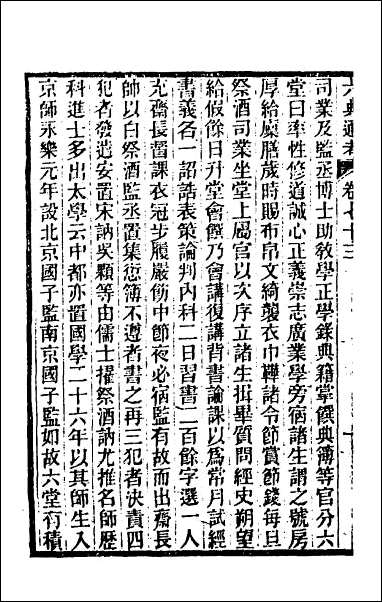 六典通考　卷七十三
司業及監丞博士助敎學正學錄典籍掌饌典簿等官分六
堂曰率性修道誠心正義崇志廣業學旁宿諸生謂之號房
厚給廩膳歲時賜布帛文綺襲衣巾鞾諸令節賞節錢每旦
祭酒司業坐堂上屬官以次序立諸生揖畢質問經史朔望
給假餘日升堂會饌乃會講復講背書論課以爲常月試經
書義各一詔誥表策論判內科二日習書二百餘字選一人
充齋長督課衣冠步履嚴飭中節夜必宿監有故而出齋長
帥以白祭酒監丞置集愆簿不遵者書之再三犯者決責四
犯者發遣安置宋訥吳顒等由儒士擢祭酒訥尤推名師歷
科進士多出太學云中都亦置國學二十六年以其師生入
京師永樂元年設北京國子監南京國子監如故六堂有積